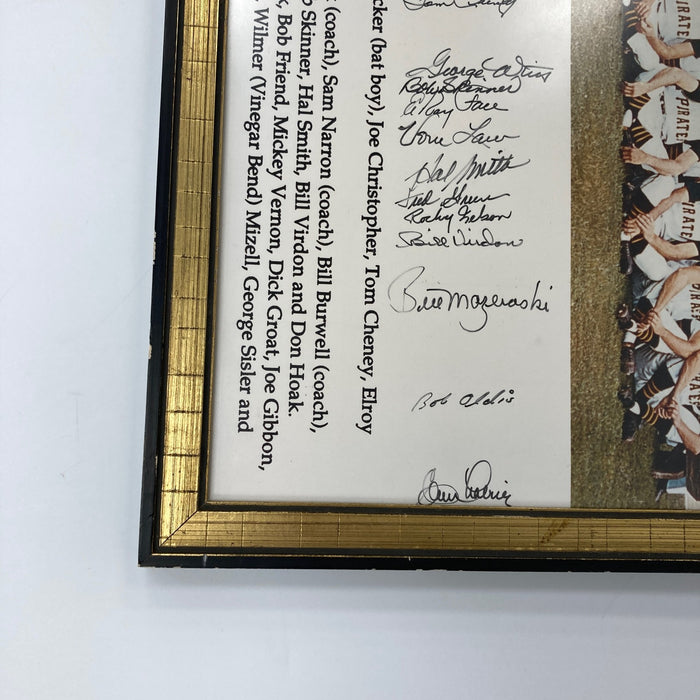 George Witt
Bob Skinner
ElRoy Face
Vern Law
Hal Smith
Fred Green
Rocky Nelson
Bill Virdon
Bill Mazeroski
Bob Oldis
PIRATE
PIRATE
cker (bat boy), Joe Christopher, Tom Cheney, Elroy
(coach), Sam Narron (coach), Bill Burwell (coach),
b Skinner, Hal Smith, Bill Virdon and Don Hoak.
, Bob Friend, Mickey Vernon, Dick Groat, Joe Gibbon,
, Wilmer (Vinegar Bend) Mizell, George Sisler and